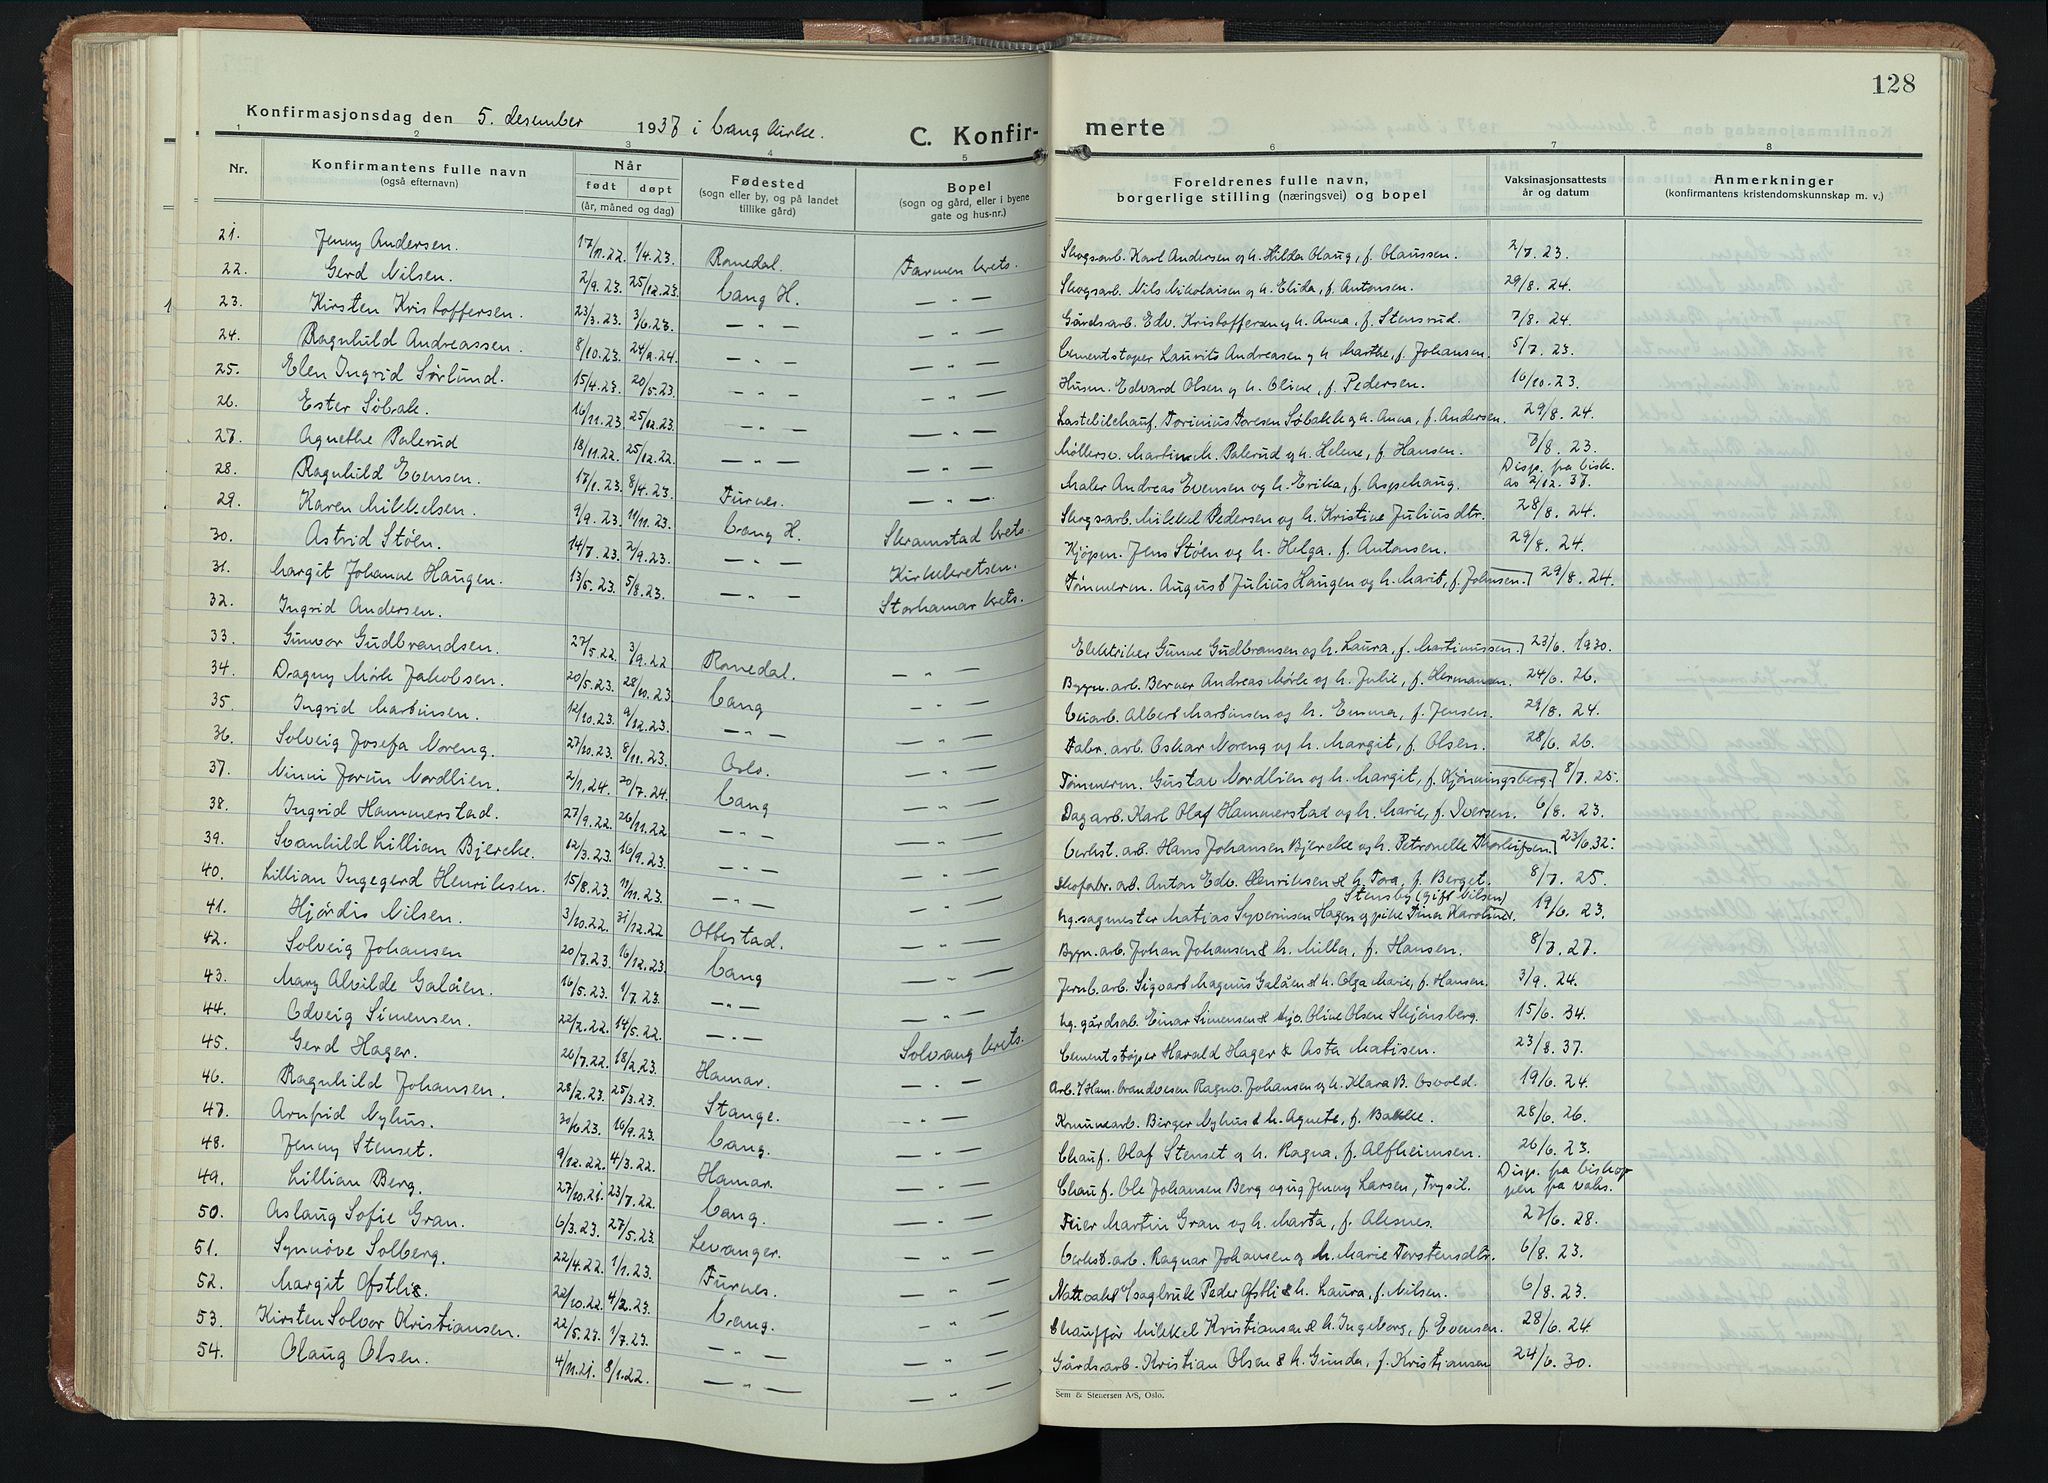 128
Konfirmasjonsdag den 5. desember 1937 i Vang kirke.
C. Konfir- merte
1 2 3 4 5 6 7 8
Nr.
Konfirmantens fulle navn
(også efternavn)
Når
født døpt
(år, måned og dag)
Fødested
(sogn eller by, og på landet
tillike gård)
Bopel
(sogn og gård, eller i byene
gate og hus-nr.)
Foreldrenes fulle navn,
borgerlige stilling (næringsvei) og bopel
Vaksinasjonsattests
år og datum
Anmerkninger
(konfirmantens kristendomskunnskap m. v.)
21. Jenny Andersen. 17/11.22. 1/4.23. Romedal. Farmen krets. Skogsarb. Karl Andersen og h. Hilda Olaug, f. Olaussen. 2/7. 23.
22. Gerd Nilsen. 2/9.23. 25/12.23. Vang H. — " — Skogsarb. Nils Nikolaisen og h. Elida, f. Antonsen. 29/8. 24.
23. Kirsten Kristoffersen. 23/3.23. 3/6.23. — " — — " — Gårdsarb. Edv. Kristoffersen og h. Anna, f. Stensrud. 7/8. 24.
24. Ragnhild Andreassen. 8/10.23. 24/2.24. — " — — " — Cementstøper Laurits Andreasen og h. Marthe, f. Johansen. 5/7. 23.
25. Elen Ingrid Sørlund. 15/4.23. 20/5.23. — " — — " — Husm. Edvard Olsen og h. Oline, f. Pedersen. 16/10. 23.
26. Ester Søbakk. 16/11.23. 25/12.23. — " — — " — Lastebilchauf. Torinius Toresen Søbakk og h. Anna, f. Andersen. 29/8. 24.
27. Agnethe Palerud 18/11.22. 25/12.22. — " — — " — Møllersv. Martin M. Palerud og h. Helene, f. Hansen. 7/8. 23.
28. Ragnhild Evensen. 17/1.23. 8/4.23. Furnes. — " — Maler Andreas Evensen og h. Erika, f. Aspehaug. Disp. fra bisk. av 2/12. 37.
29. Karen Mikkelsen. 9/9.23. 11/11.23. Vang H. Skramstad krets. Skogsarb. Mikkel Pedersen og h. Kristine Juliusdtr. 28/8. 24.
30. Astrid Støen. 14/7.23. 2/9.23. — " — Kirkekretsen. Kjøpm. Jens Støen og h. Helga, f. Antonsen. 29/8. 24.
31. Margit Johanne Haugen. 13/5.23. 5/8.23. — " — Storhamar krets. Tømmerm. August Julius Haugen og h. Marit, f. Johansen. 29/8. 24.
32. Ingrid Andersen.
33. Gunvor Gudbrandsen. 27/5.22. 3/9.22 Romedal. — " — Elektriker Gunne Gudbransen og h. Laura, f. Martinussen. 23/6. 1930.
34. Dagny Mørk Jakobsen. 20/5.23. 28/10.23. Vang — " — Bygn. arb. Berner Andreas Mørk og h. Julie, f. Hermansen. 24/6. 26.
35. Ingrid Martinsen. 12/10.23. 9/12.23. — " — — " — Veiarb. Albert Martinsen og h. Emma, f. Jensen. 29/8. 24.
36. Solveig Josefa Noreng. 27/10.23. 8/11.23. Oslo. — " — Fabr. arb. Oskar Noreng og h. Margit, f. Olsen. 28/6. 26.
37. Ninni Jorun Nordlien. 2/1.24. 20/7.24. Vang — " — Tømmerm. Gustav Nordlien og h. Margit, f. Kjønningsberg. 8/7. 25.
38. Ingrid Hammerstad. 27/9.22. 26/11.22 — " — — " — Dagarb. Karl Olaf Hammerstad og h. Marie, f. Iversen. 6/8. 23.
39. Svanhild Lillian Bjercke. 12/3.23. 16/9.23. — " — — " — Verkst. arb. Hans Johansen Bjercke og h. Petronelle Thorleifsen. 23/6.32.
40. Lillian Ingegerd Henriksen. 15/8.23. 11/11.23. — " — — " — Skofabr. arb. Anton Edv. Henriksen & h. Tora, f. Berget. 8/7. 25.
41. Hjørdis Nilsen. 3/10.22. 31/12.22 Ottestad. — " — ug. sagmester Matias Syverinsen Hagen og pike Tina Karoline Stensby (gift Nilsen). 19/6. 23.
42. Solveig Johansen 20/7.23. 16/12.23. Vang — " — Bygn. arb. Johan Johansen & h. Milla, f. Hansen. 8/7. 27.
43. Mary Alvilde Galåen. 16/5.23. 1/7.23. — " — — " — Jernb. arb. Sigvart Magnus Galåen & h. Olga Marie, f. Hansen. 3/9. 24.
44. Odveig Simensen. 22/2.22. 14/5.22. — " — — " — ug. gårdsab. Einar Simensen & Oline Olsen Skjønsberg. 15/6. 34.
45. Gerd Hager. 20/7.22. 18/2.23. Hamar. Solvang krets. Cementstøper Harald Hager & Asta Matisen. 23/8. 37.
46. Ragnhild Johansen. 28/2.23. 25/3.23. Stange. — " — Arb. v/Ham. brandvesen Ragnv. Johansen og h. Klara B. Osvold. 19/6. 24.
47. Arnfrid Nyhus. 30/6.23. 16/9.23. Vang. — " — Kommunearb. Birger Nyhus & h. Agnete, f. Bakke. 28/6. 26.
48. Jenny Stenset. 9/12.22. 4/3.22. Hamar. — " — Chauf. Olaf Stenset og h. Ragna, f. Alfheimsen. 26/6. 23.
49. Lillian Berg. 27/10.21. 23/7.22. Vang. — " — Chauf. Ole Johansen Berg og ug Jenny Larsen, Trysil. Disp. fra biskoppen fra vaks.
50. Aslaug Sofie Gran. 6/3.23. 27/5.23. Levanger. — " — Feier Martin Gran og h. Marta, f. Alsnes. 27/6. 28.
51. Synnøve Solberg. 22/4.22. 1/1.23. Furnes. — " — Verkst. arb. Ragnar Johansen og h. Marie Torstensdtr. 6/8. 23.
52. Margit Ofstlie. 22/10.22. 4/2.23. Vang. — " — Nattvakt v/sagbruk Peder Ofstli & h. Laura, f. Nilsen. 6/8. 23.
53. Kirsten Solvor Kristiansen. 22/5.23. 1/7.23. — " — — " — Chauffør Mikkel Kristiansen & h. Ingeborg, f. Evensen. 28/6. 24.
54. Olaug Olsen. 4/11.21. 8/1.22. — " — — " — Gårdsarb. Kristian Olsen & h. Gunda, f. Kristiansen 24/6. 30.
Sem & Stenersen A/S, Oslo.